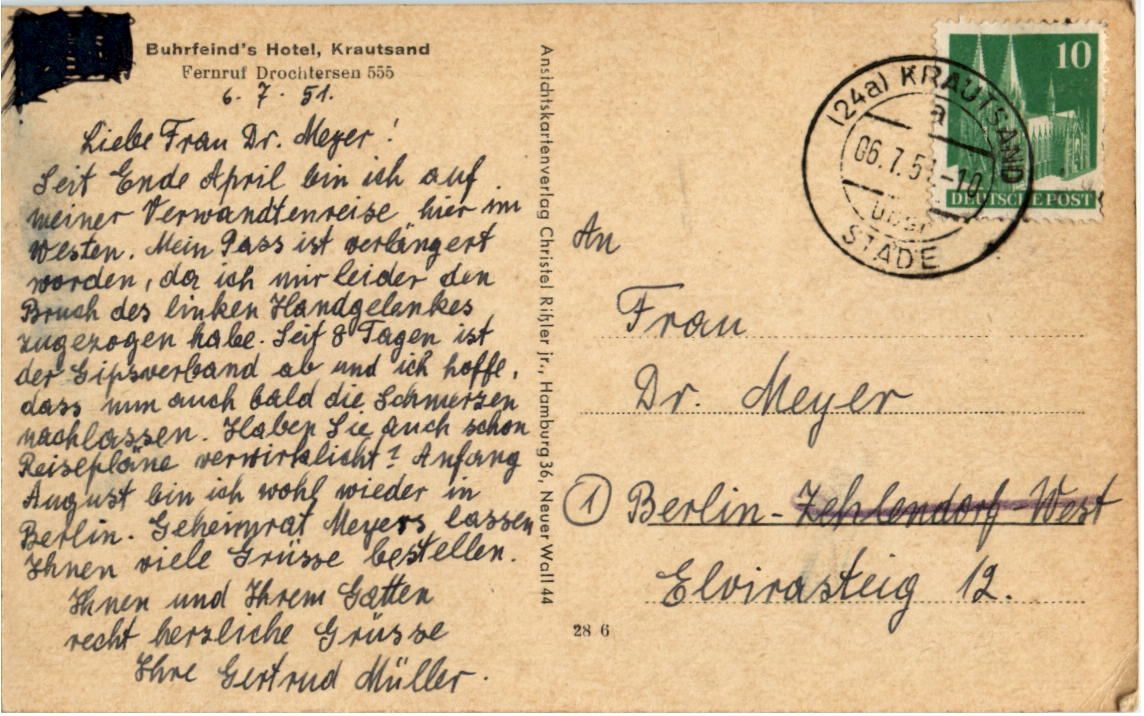 Buhrfeind's Hotel, Krautsand
Fernruf Drochtersen 555
6. 7. 51.
Liebe Frau Dr. Meyer!
Seit Ende April bin ich auf
meiner Verwandtenreise hier im
Westen. Mein Pass ist verlängert
worden, da ich mir leider den
Bruch des linken Handgelenkes
zugezogen habe. Seit 8 Tagen ist
der Gipsverband ab und ich hoffe,
dass nun auch bald die Schmerzen
nachlassen. Haben Sie auch schon
Reisepläne verwirklicht? Anfang
August bin ich wohl wieder in
Berlin. Geheimrat Meyers lassen
Ihnen viele Grüsse bestellen.
Ihnen und Ihrem Gatten
recht herzliche Grüsse
Ihre Gertrud Müller.
Ansichtskartenverlag Christel Rißler jr., Hamburg 36, Neuer Wall 44
10
DEUTSCHE POST
(24a) KRAUTSAND
a
06.7.51.-10
über
STADE
An
Frau
Dr. Meyer
1 Berlin-Zehlendorf-West
Elvirasteig 12.
28 6